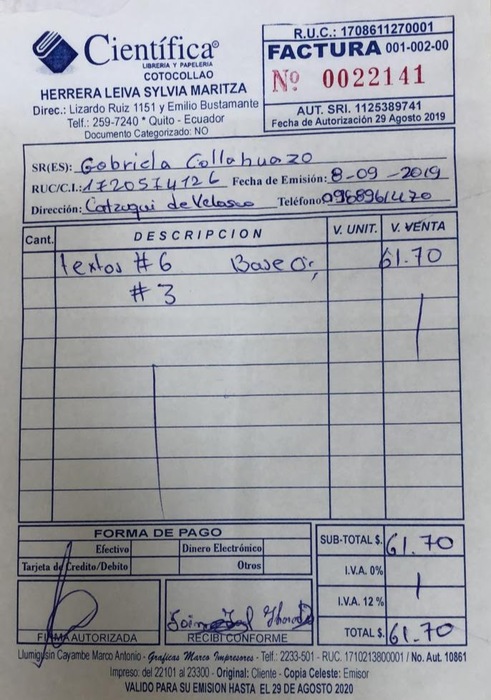 Científica®
LIBRERIA Y PAPELERIA
COTOCOLLAO
HERRERA LEIVA SYLVIA MARITZA
Direc.: Lizardo Ruiz 1151 y Emilio Bustamante
Telf.: 259-7240 * Quito - Ecuador
Documento Categorizado: NO
R.U.C.: 1708611270001
FACTURA 001-002-00
Nº 0022141
AUT. SRI. 1125389741
Fecha de Autorización 29 Agosto 2019
SR(ES): Gabriela Collahuazo
RUC/C.I.: Fecha de Emisión: 8-09-2019
Dirección: Cotzaqui de Velasco Teléfono
Cant. DESCRIPCION V. UNIT. V. VENTA
textos #6 61.70
#3
FORMA DE PAGO
Efectivo Dinero Electrónico
Tarjeta de Credito/Debito Otros
SUB-TOTAL $. 61.70
I.V.A. 0%
I.V.A. 12 %
TOTAL $. 61.70
FIRMA AUTORIZADA RECIBI CONFORME
Llumigusin Cayambe Marco Antonio - Graficas Marco Impresores - Telf.: 2233-501 - RUC. 1710213800001 / No. Aut. 10861
Impreso: del 22101 al 23300 - Original: Cliente - Copia Celeste: Emisor
VALIDO PARA SU EMISION HASTA EL 29 DE AGOSTO 2020